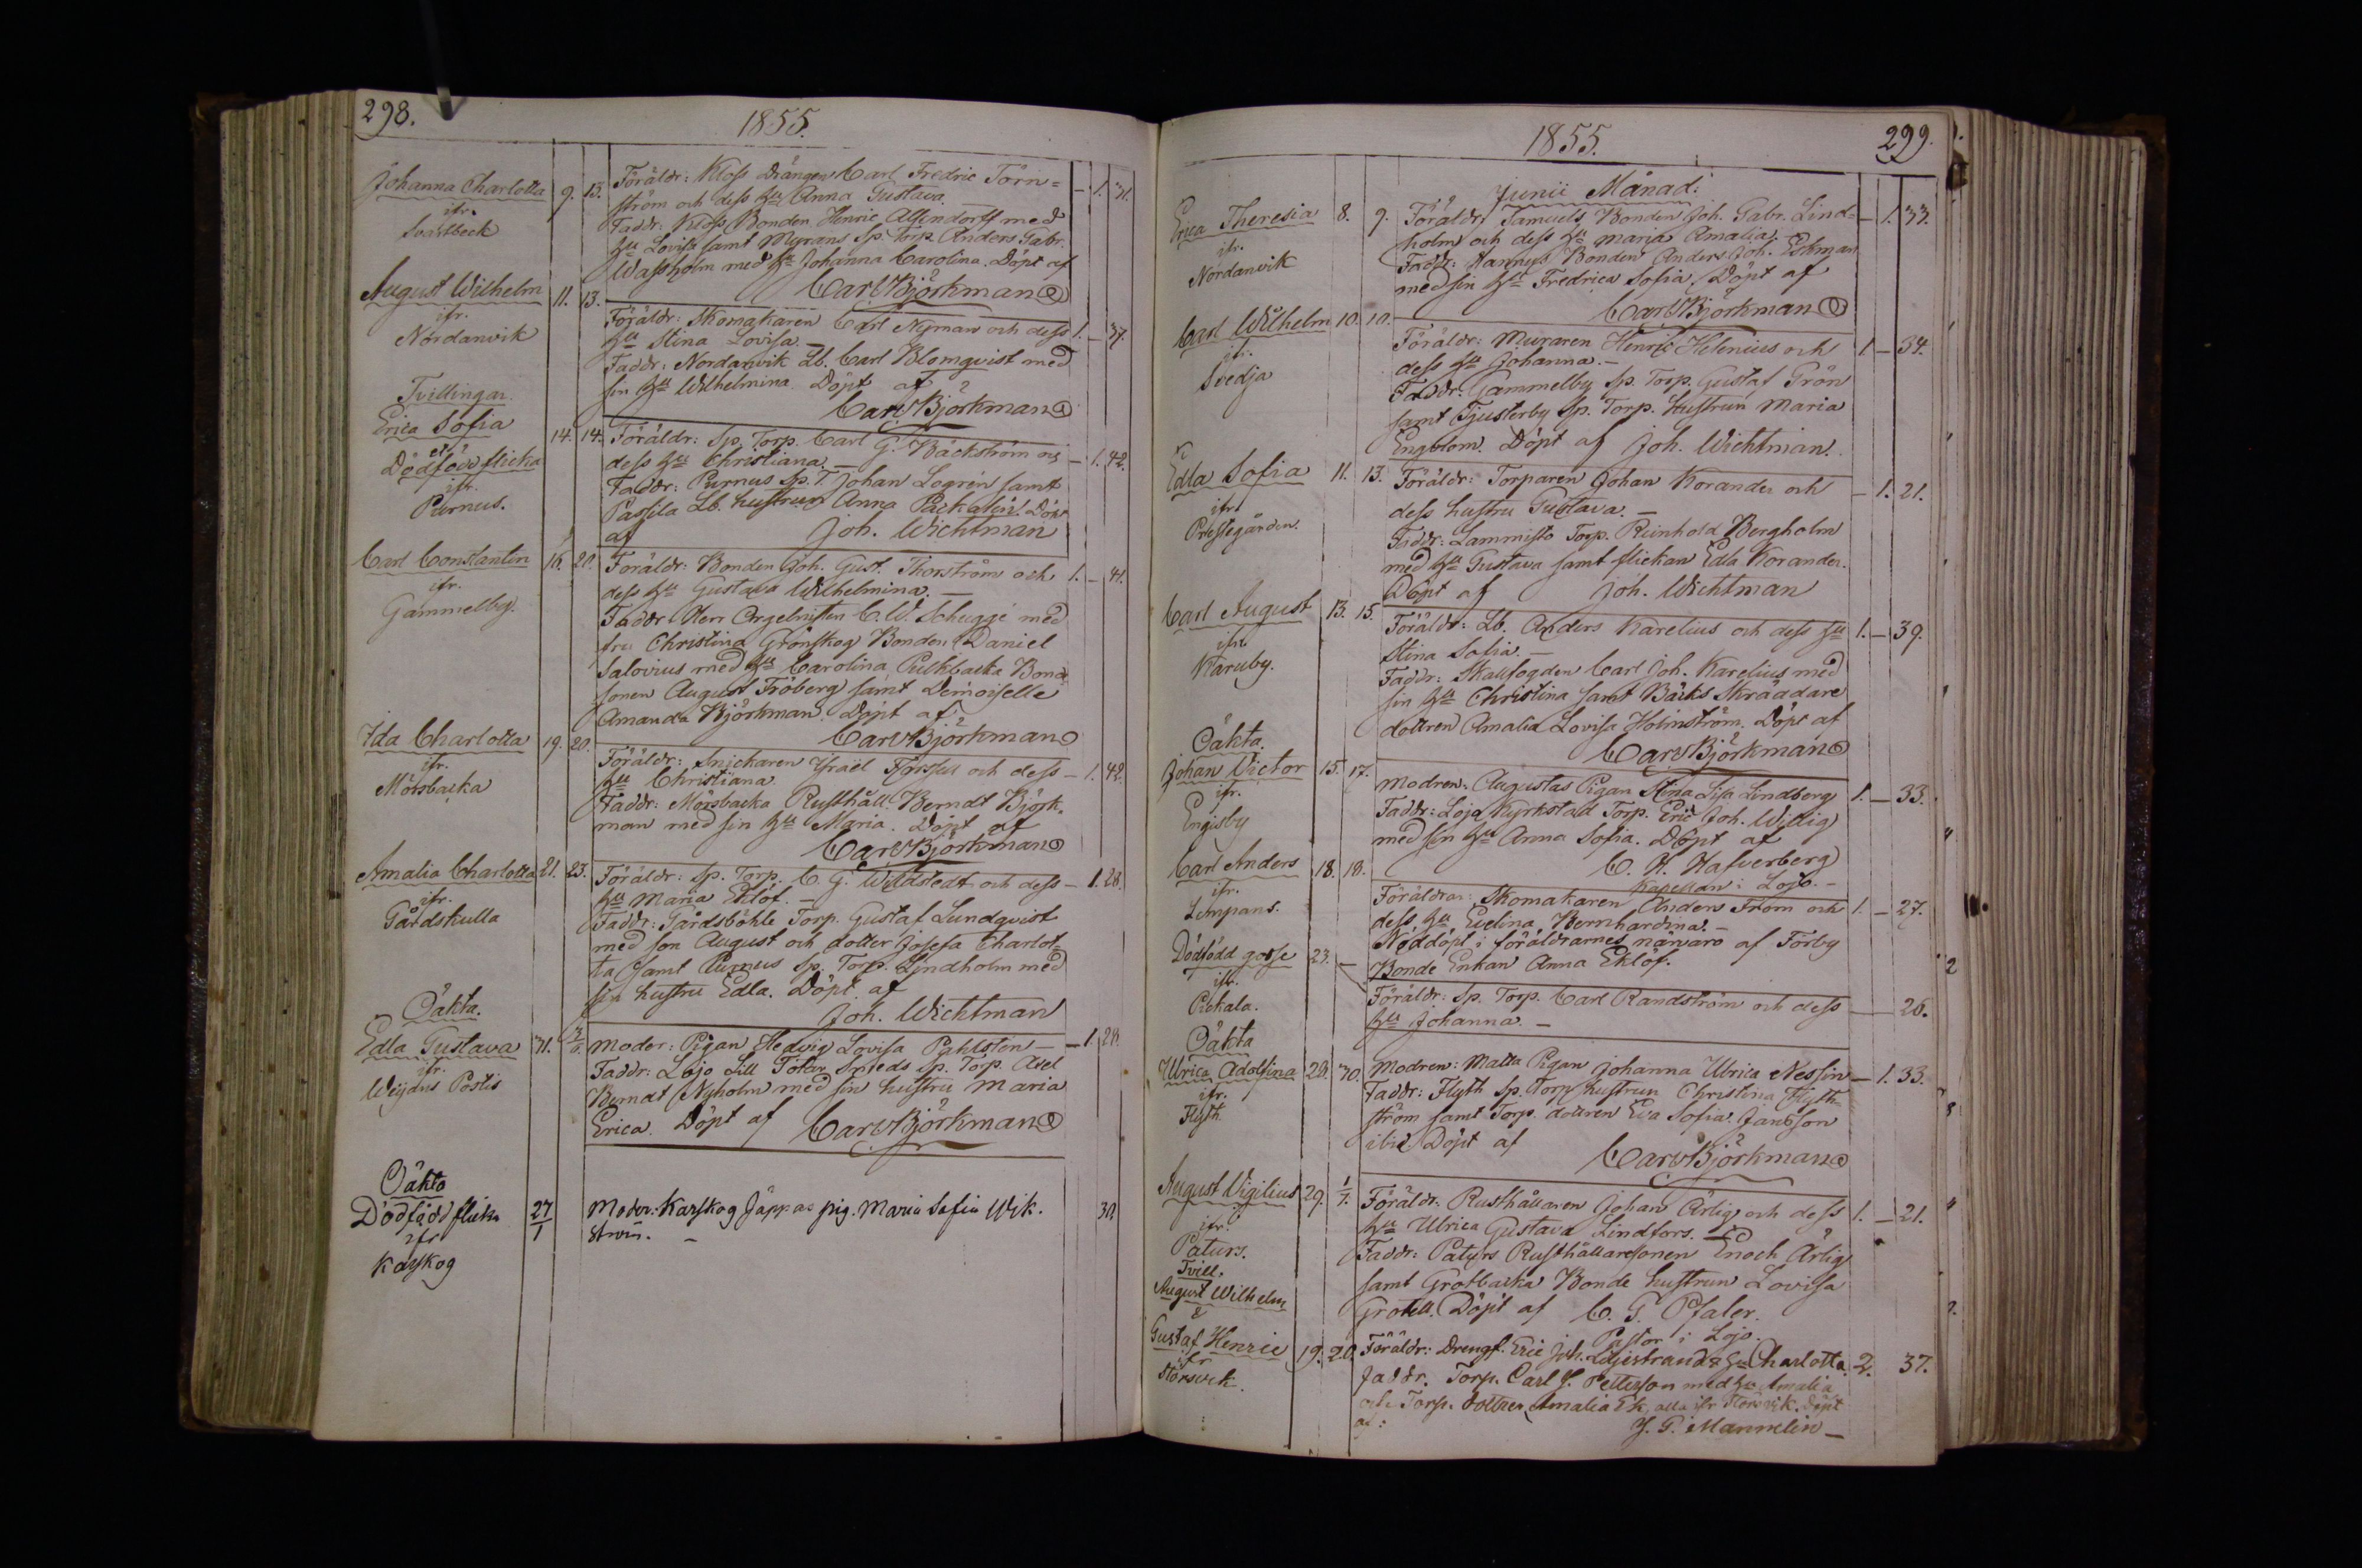 298.
1855.
Johanna Charlotta 9. 13. Föräldr: Kloss Drängen Carl Fredric Törn= – 1. 31.
ifr. ström och dess hu Anna Gustava.
Svartbeck Faddr: Kloss Bonden Henric Altendorff med
hu Lovisa samt Myrans Sp. Torp. Anders Gabr.
Wassholm med hu Johanna Carolina. Döpt af
Carl Björkman
August Wilhelm 11. 13. Föräldr: Skomakaren Carl Nyman och dess 1. – 37.
ifr. hu Stina Lovisa. –
Nordanvik Faddr: Nordanvik Lb. Carl Blomqvist med
sin hu Wilhelmina. Döpt af
Carl Björkman
Tvillingar.
Erica Sofia 14. 14. Föräldr: Sp. Torp. Carl G. Bäckström och – 1. 42.
et dess hu Christiana. –
Dödfödd flicka Faddr: Purnus Sp. T. Johan Logrén samt
ifr. Passila Lb. hustrun Anna Packalén. Döpt
Purnus. af Joh. Wichtman
Carl Constantin 16. 20. Föräldr: Bonden Joh. Gust. Thorström och 1. – 41.
ifr. dess hu Gustava Wilhelmina. –
Gammelby. Faddr Herr Orgelnisten C. W. Schugge med
fru Christina Grönskog Bonden Daniel
Salovius med hu Carolina Bond
sonen August Fröberg samt Demoiselle
Amanda Björkman. Döpt af
Carl Björkman
Ida Charlotta 19. 20. Föräldr: Snickaren Israel Forssell och dess – 1. 42.
ifr. hu Christiana.
Mörsbacka Faddr: Mörsbacka Rusthåll. Berndt Björk-
man med sin hu Maria. Döpt af
Carl Björkman
Amalia Charlotta 21. 23. Föräldr: Sp. Torp. C. G. Wildstedt och dess – 1. 28.
ifr. hu Maria Eklöf. –
Gårdskulla Faddr: Gårdsböhle Torp. Gustaf Lundqvist
med son August och dotter Josefa Charlot-
ta samt Purnus Sp. Torp. Lindholm med
sin hustru Edla. Döpt af
Joh. Wichtman
Oäkta.
Edla Gustava 31. 3/6. Moder: Pigan Hedvig Lovisa Pahlsten – – 1. 28.
ifr. Faddr: Lojo Lill Sp. Torp. Axel
Weijans Postis Berndt Nyholm med sin hustru Maria
Erica. Döpt af Carl Björkman
Oäkta
Dödfödd flicka 27/1 Moder: Karskog Jäppas pig. Maria Sofia Wik. 30
ifr ström. –
Karskog
1855.
299.
Junii Månad:
Erica Theresia 8. 9. Föräldr: Samuels Bonden Joh. Gabr. Lind= – 1. 33.
ifr. holm och dess hu Maria Amalia –
Nordanvik Faddr: Hannus Bonden Anders Joh. Ekman
med sin hu Fredrica Sofia. Döpt af
Carl Björkman
Carl Wilhelm 10. 10. Föräldr: Muraren Henric Helenius och 1 – 34.
ifr. dess hu Johanna. –
Svedja Faddr: Gammelby Sp. Torp. Gustaf Grön
samt Tjusterby Sp. Torp. Hustrun Maria
Engblom. Döpt af Joh. Wichtman.
Edla Sofia 11. 13. Föräldr: Torparen Johan Korander och – 1. 21.
ifr. dess hustru Gustava. –
Prestegården. Faddr: Lammisto Torp. Reinhold Bergholm
med hu Gustava samt flickan Edla Korander.
Döpt af Joh. Wichtman
Carl August 13. 15. Föräldr: Lb. Anders Karelius och dess hu 1. – 39.
ifr. Stina Sofia. –
Karuby. Faddr: Skallfogden Carl Joh. Karelius med
sin hu Christina samt Bäcks Skräddare
dottren Amalia Lovisa Holmström. Döpt af
Carl Björkman
Oäkta.
Johan Victor 15. 17. Modren: Augustas Pigan Stina Lisa Lindberg 1. – 33.
ifr. Faddr: Lojo Kyrkstad Torp. Eric Joh. Willig
Engisby med sin hu Anna Sofia. Döpt af
C. H. Hafverberg
Kapellan i Lojo. –
Carl Anders 18. 18. Föräldrar: Skomakaren Anders From och 1. – 27.
ifr. dess hu Evelina Bernhardina. –
Limpans. Nöddöpt i föräldrarnes närvaro af Förby
Bonde Enkan Anna Eklöf.
Dödfödd gosse 23. – Föräldr: Sp. Torp. Carl Randström och dess – 26.
ifr. hu Johanna. –
Pickala.
Oäkta
Ulrica Adolfina 28. 30. Modren: Malla Pigan Johanna Ulrica Nessin – 1. 33.
ifr. Faddr: Flyth Sp. Torp. hustrun Christina Flyth=
Flyth. ström samt Torp. dottren Eva Sofia Jansson
ibid. Döpt af
Carl Björkman
August Vigilius 29. 1/7. Föräldr: Rusthållaren Johan Ärlig och dess 1. – 21.
ifr. hu Ulrica Gustava Lindfors. –
Paturs. Faddr: Paturs Rusthållaresonen Enoch Ärlig
samt Grotbacka Bonde hustrun Lovisa
Grotell. Döpt af C. G. Pfaler.
Pastor i Lojo.
Tvill.
August Wilhelm
&
Gustaf Henric 19. 20. Föräldr: Drengf. Eric Joh. Liljestrand & hu Charlotta. 2. 37.
ifr Faddr. Torp. Carl J. Petterson med hu Amalia
Störsvik. och Torp. dottren Amalia Ek, alla ifr Störsvik. Döpt
af: J. G. Mannelin –